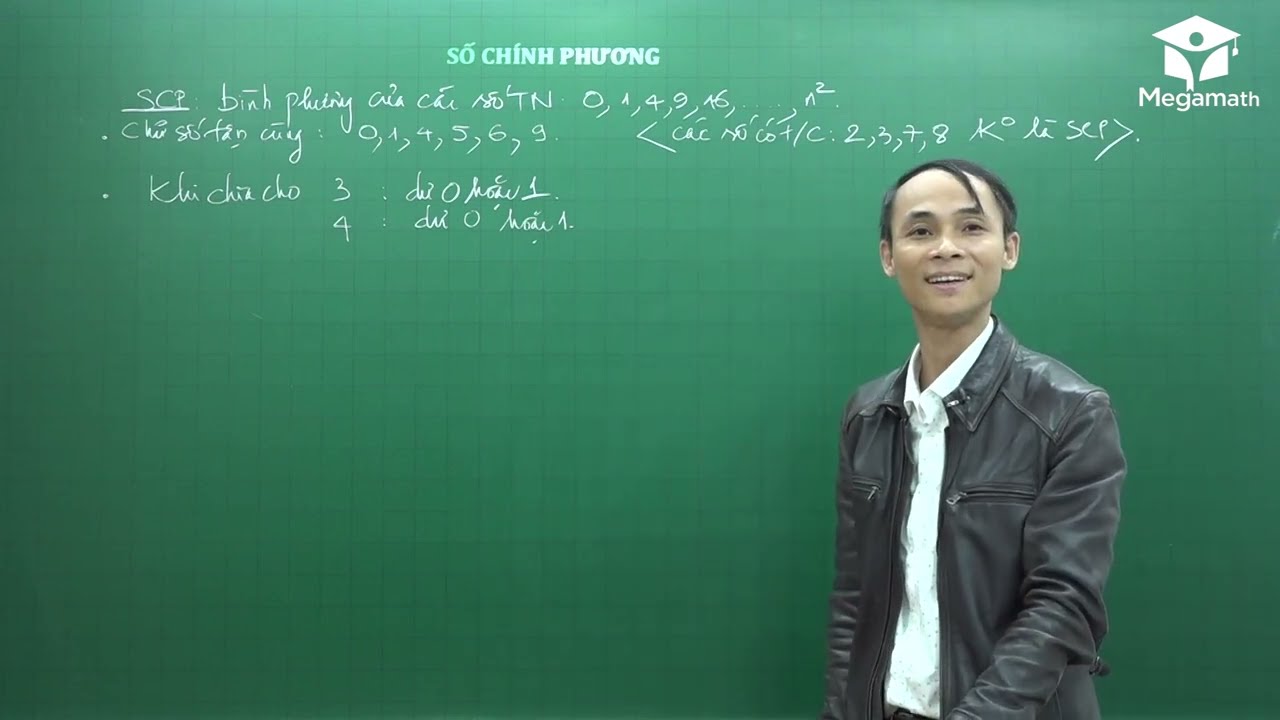 SỐ CHÍNH PHƯƠNG
Megamath
SCP: bình phương của các số TN: 0, 1, 4, 9, 16, ...., n²
. Chữ số tận cùng: 0, 1, 4, 5, 6, 9. <các số có t/c: 2, 3, 7, 8 K° là SCP>.
. Khi chia cho 3 : dư 0 hoặc 1.
4 : dư 0 hoặc 1.